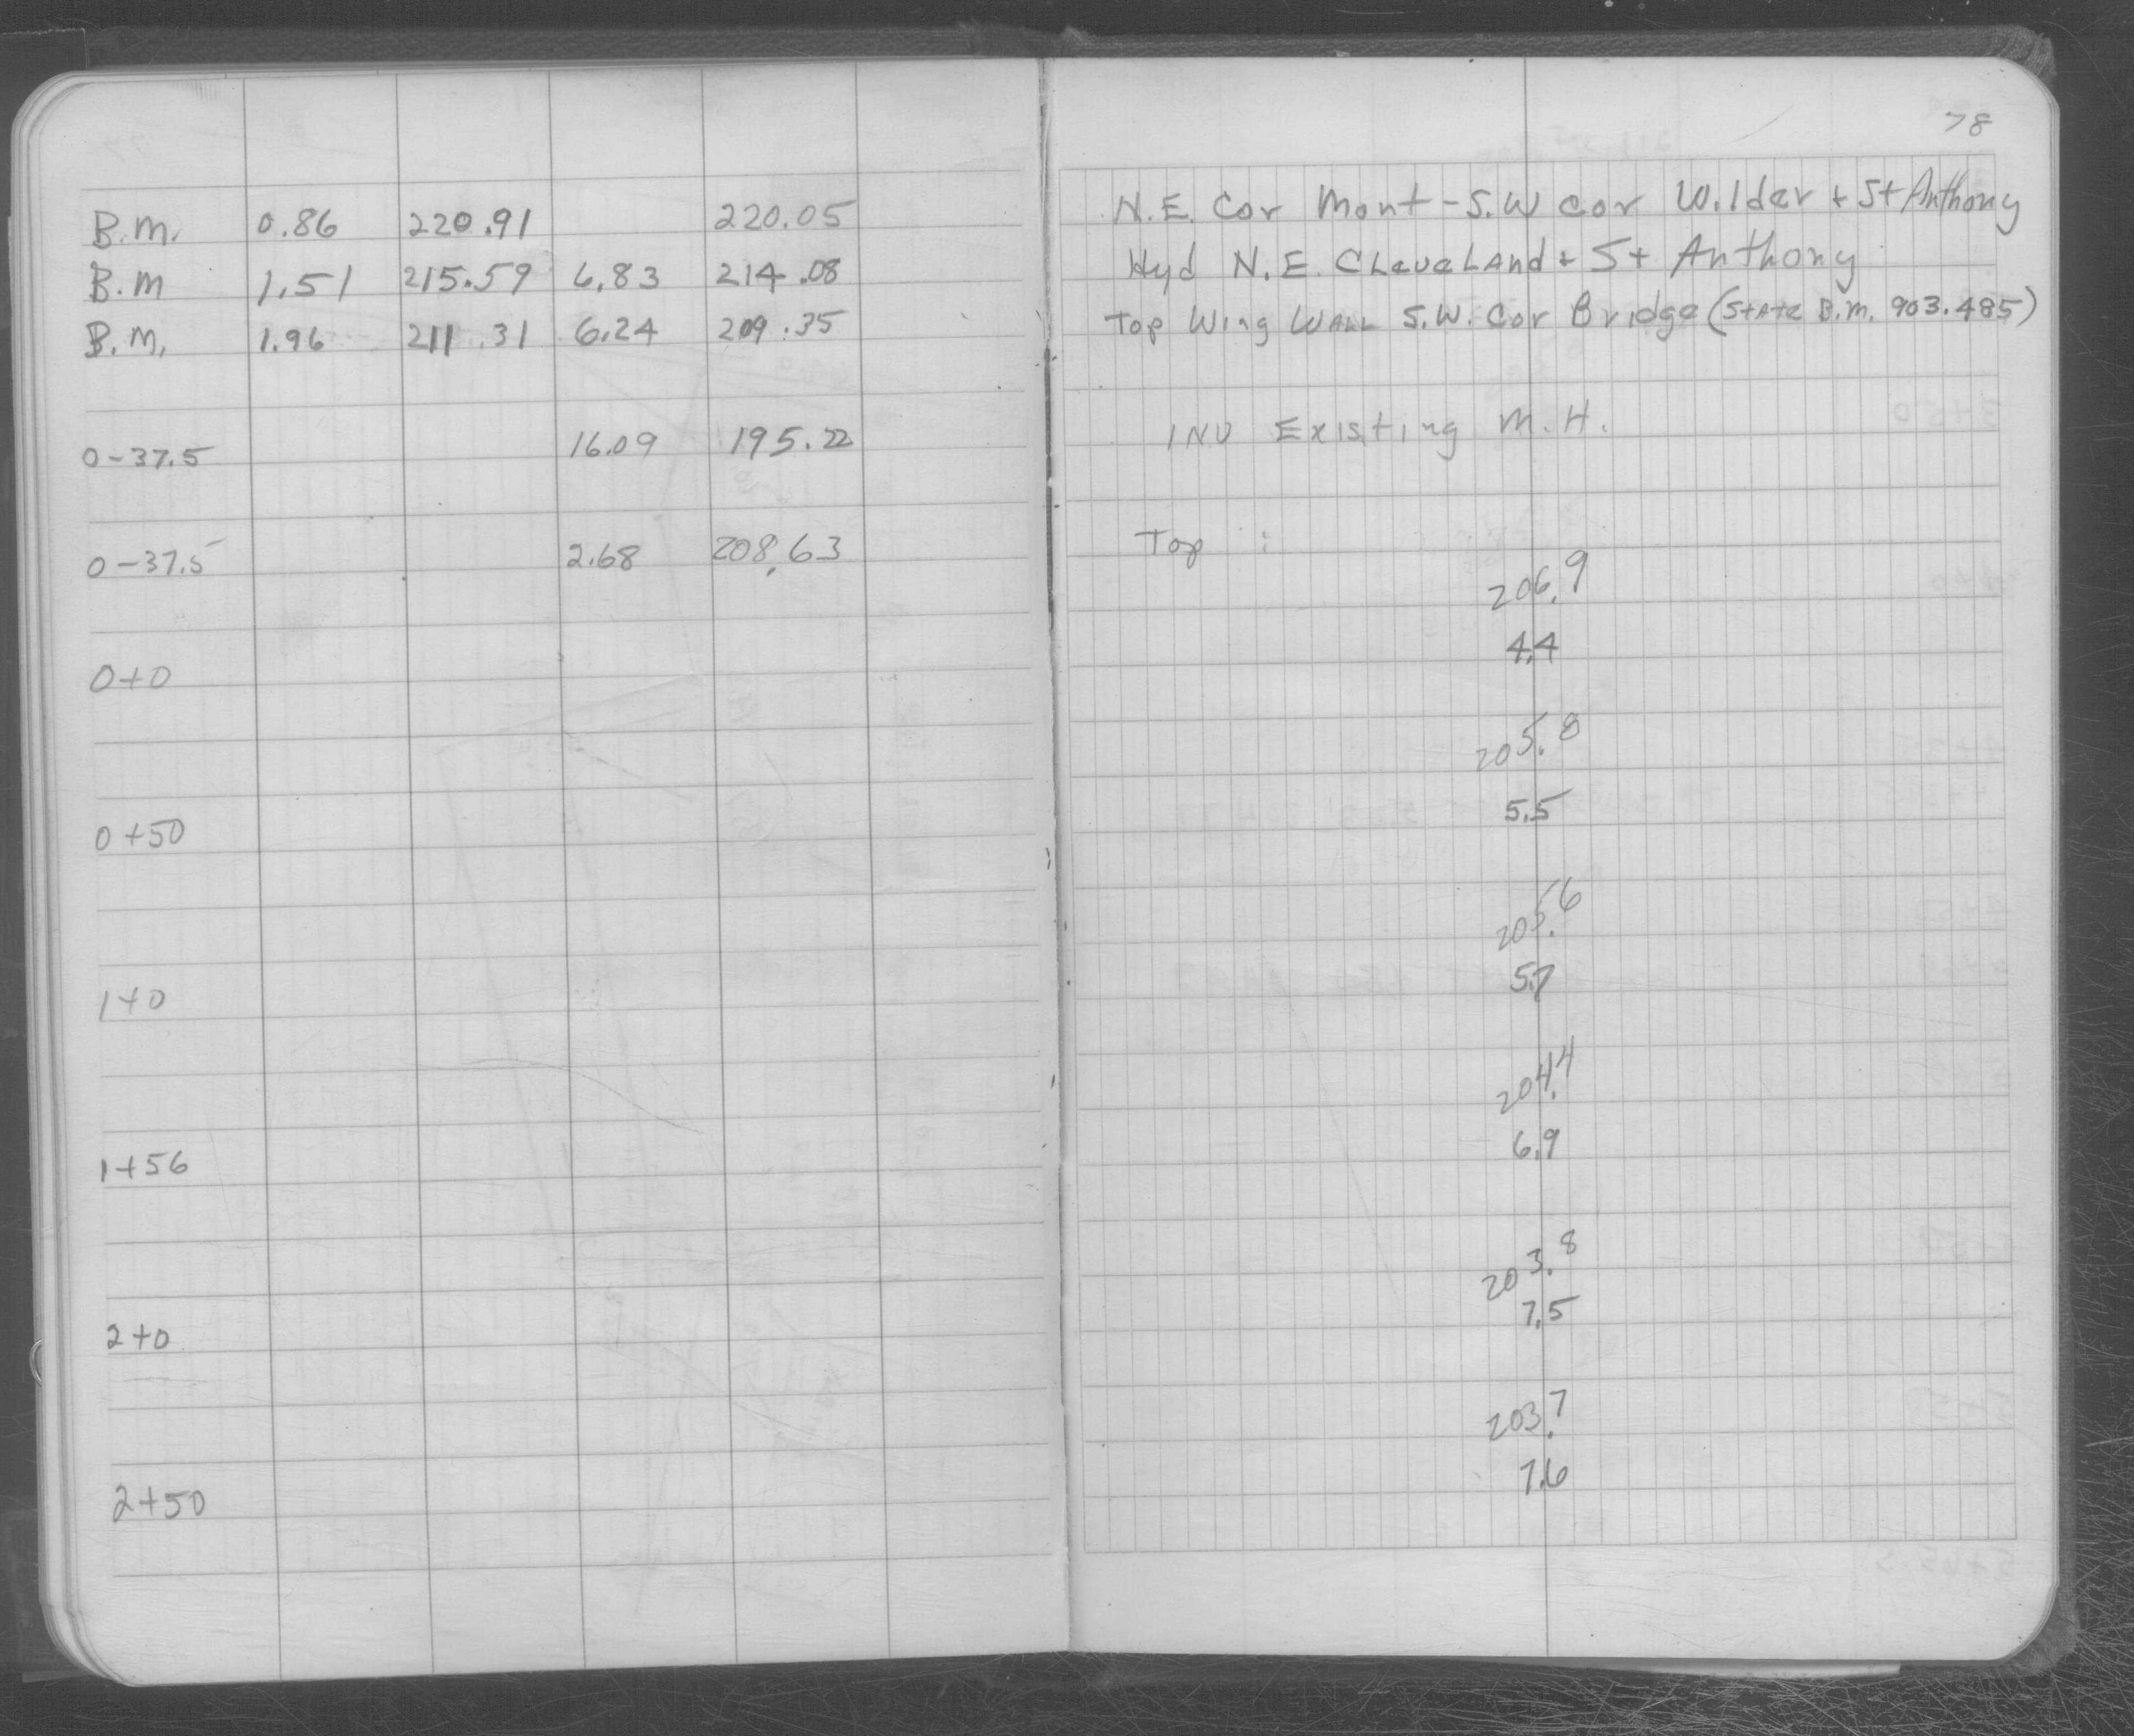 78
B.M. 0.86 220.91 220.05 N.E. Cor Mont - S.W cor Wilder + St Anthony
B.M 1.51 215.59 6.83 214.08 Hyd N.E. Cleveland + St Anthony
B.M. 1.96 211.31 6.24 209.35 Top Wing Wall S.W. Cor Bridge (State B.M. 903.485)
0-37.5 16.09 195.22 INV Existing M.H.
0-37.5 2.68 208.63 Top :
206.9
0+0 4.4
205.8
0+50 5.5
205.6
1+0 5.7
204.4
1+56 6.9
203.8
2+0 7.5
203.7
2+50 7.6